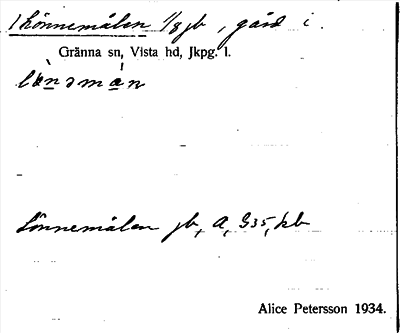 1 Lönnemålen 1/8 jb, gård i
Gränna sn, Vista hd, Jkpg. l.
lænəman
Lönnemålen jb, A, G35, kb
Alice Petersson 1934.